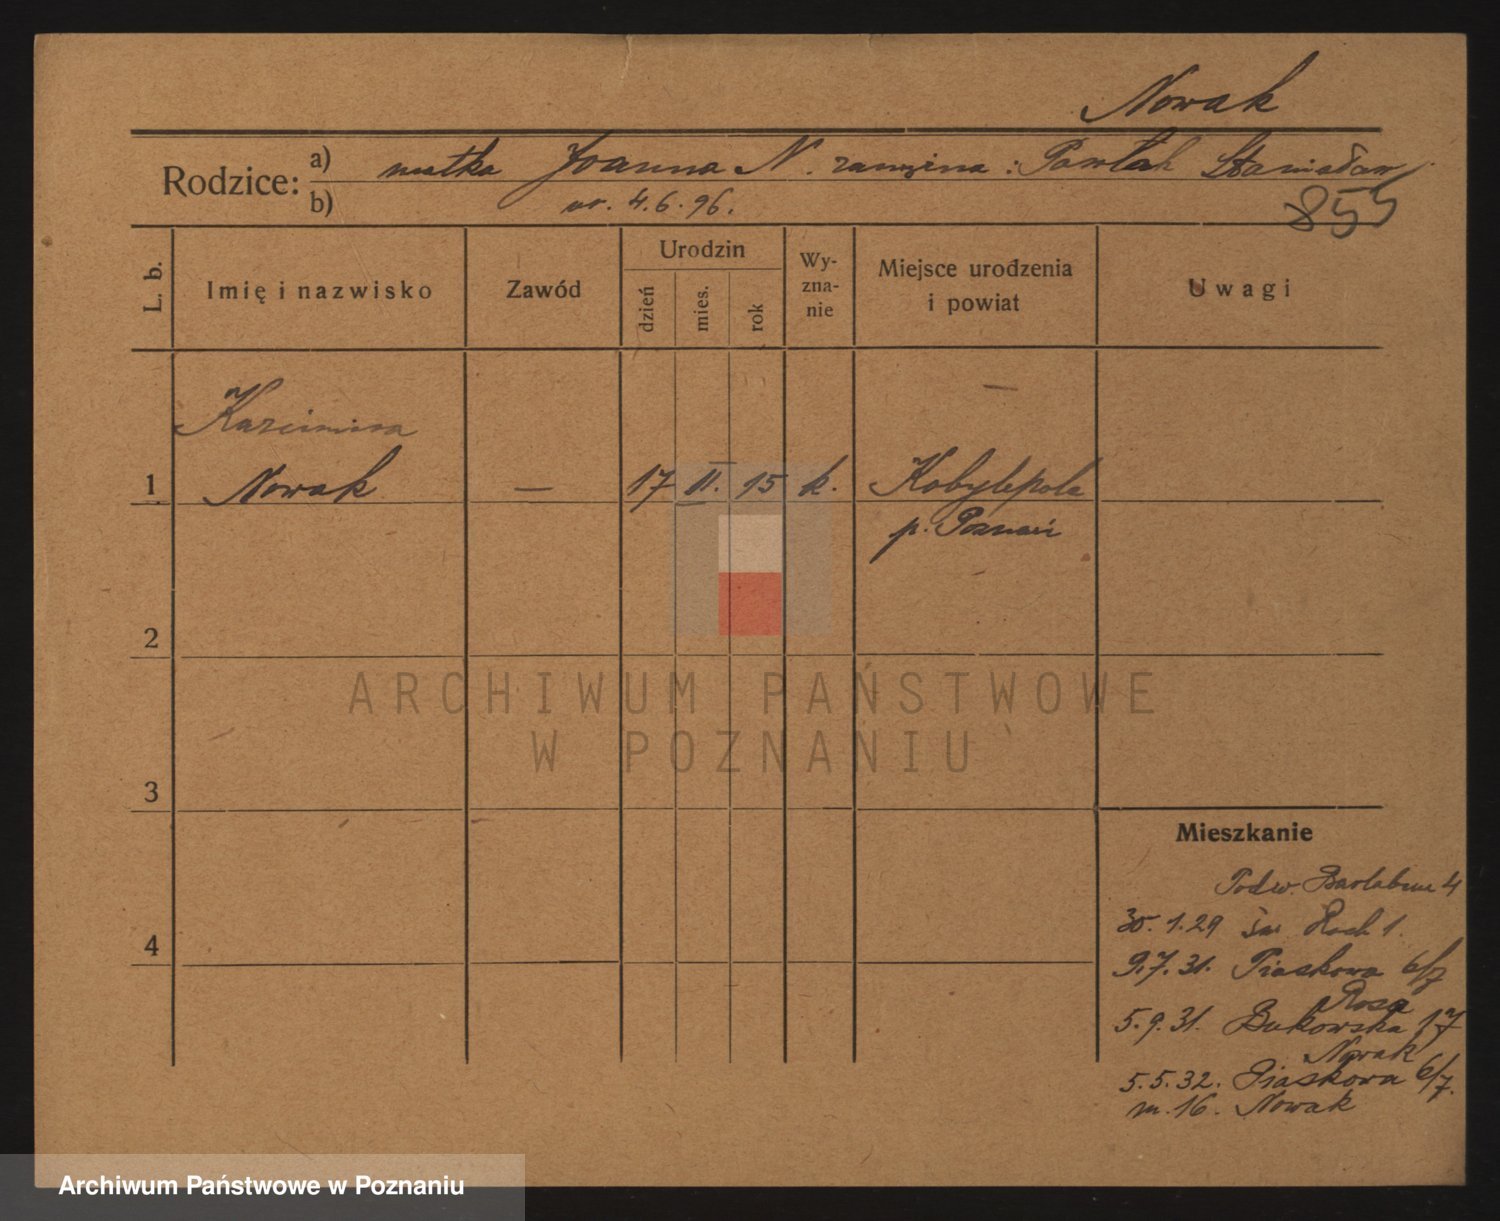 Nowak
Rodzice: a) matka Joanna N. zamężna: Pawlak Stanisław
b) ur. 4.6.96.
855
L. b.
Imię i nazwisko
Zawód
Urodzin
dzień
mies.
rok
Wy-
zna-
nie
Miejsce urodzenia
i powiat
Uwagi
Kazimiera
1 Nowak — 17 II. 15 k. Kobylepole
p. Poznań
2
3
4
Mieszkanie
Podw. 4
30.1.29 św. Roch 1.
9.7.31. Piaskowa 6/7
Rosa
5.9.31. Bukowska 17
Nowak
5.5.32. Piaskowa 6/7.
m. 16. Nowak
ARCHIWUM PAŃSTWOWE
W POZNANIU
Archiwum Państwowe w Poznaniu